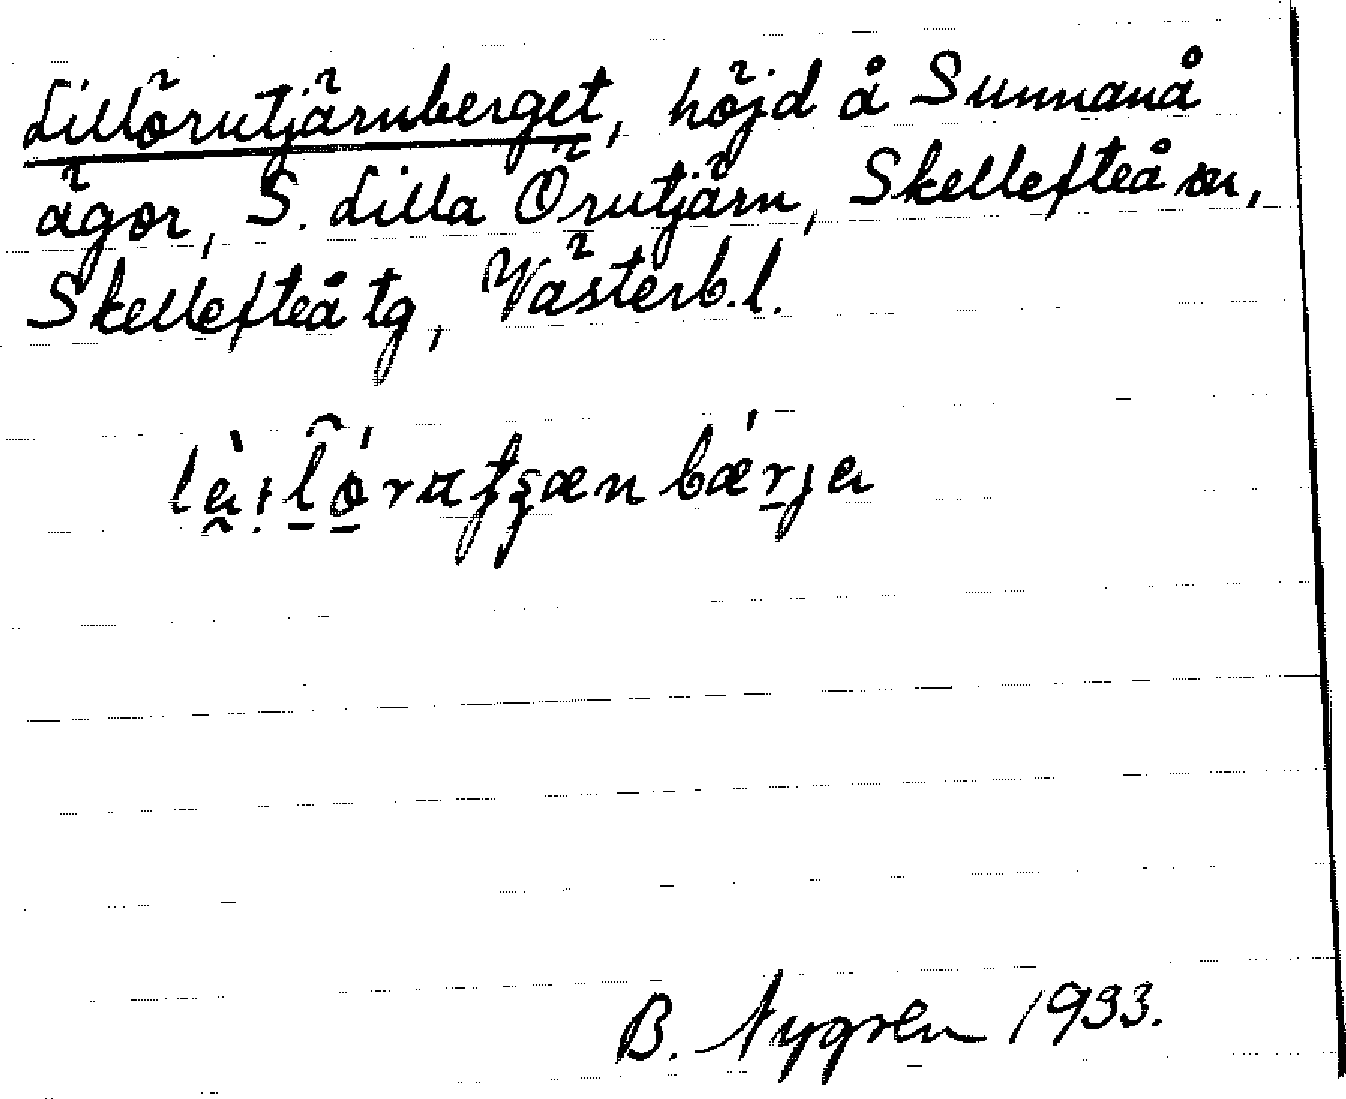 Lillörutjärnberget, höjd å Sunnanå
ägor, S. Lilla Örutjärn, Skellefteå sn,
Skellefteå tg, Västerb.l.
B. Nygren 1933.